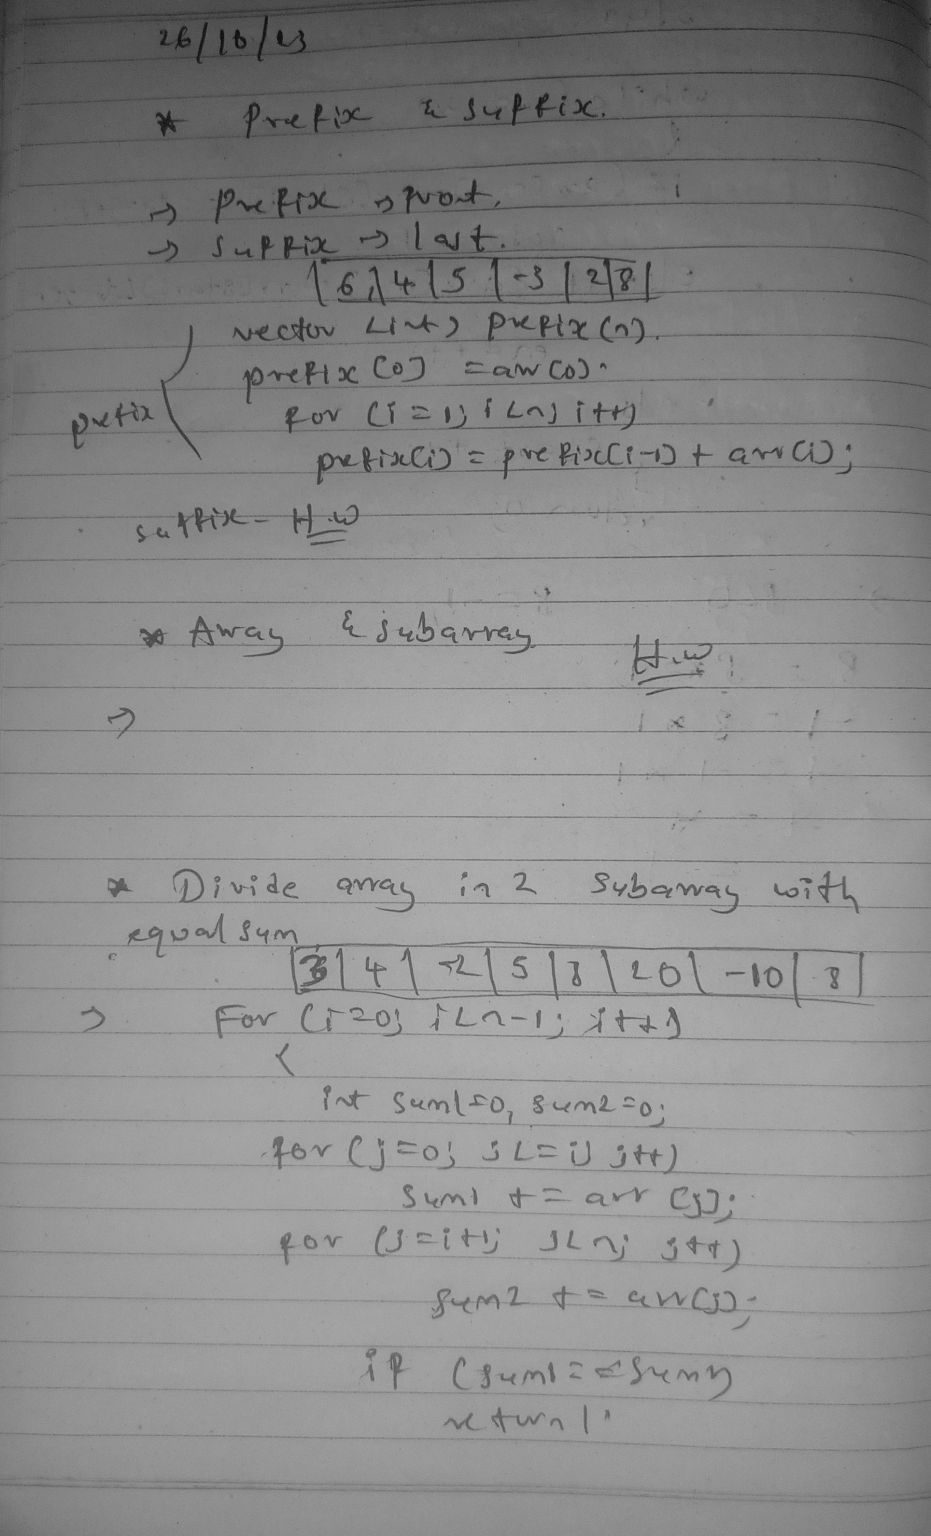 26/10/23
* Prefix & suffix.
→ Prefix → front.
→ Suffix → last.
| 6 | 4 | 5 | -3 | 2 | 8 |
vector <int> prefix(n).
prefix[0] = arr[0].
prefix
for (i=1; i<n; i++)
prefix[i] = prefix[i-1] + arr[i];
suffix - H.W
* Array & subarray
H.W
→
* Divide array in 2 subarray with
equal sum
| 3 | 4 | -2 | 5 | 8 | 20 | -10 | 8 |
→ For (i=0; i<n-1; i++)
{
int sum1=0, sum2=0;
for (j=0; j<=i; j++)
sum1 += arr[j];
for (j=i+1; j<n; j++)
sum2 += arr[j];
if (sum1==sum2)
return 1;